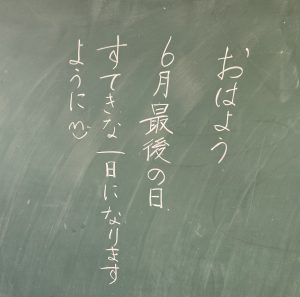 おはよう
6月最後の日.
すてきな一日になります
ように